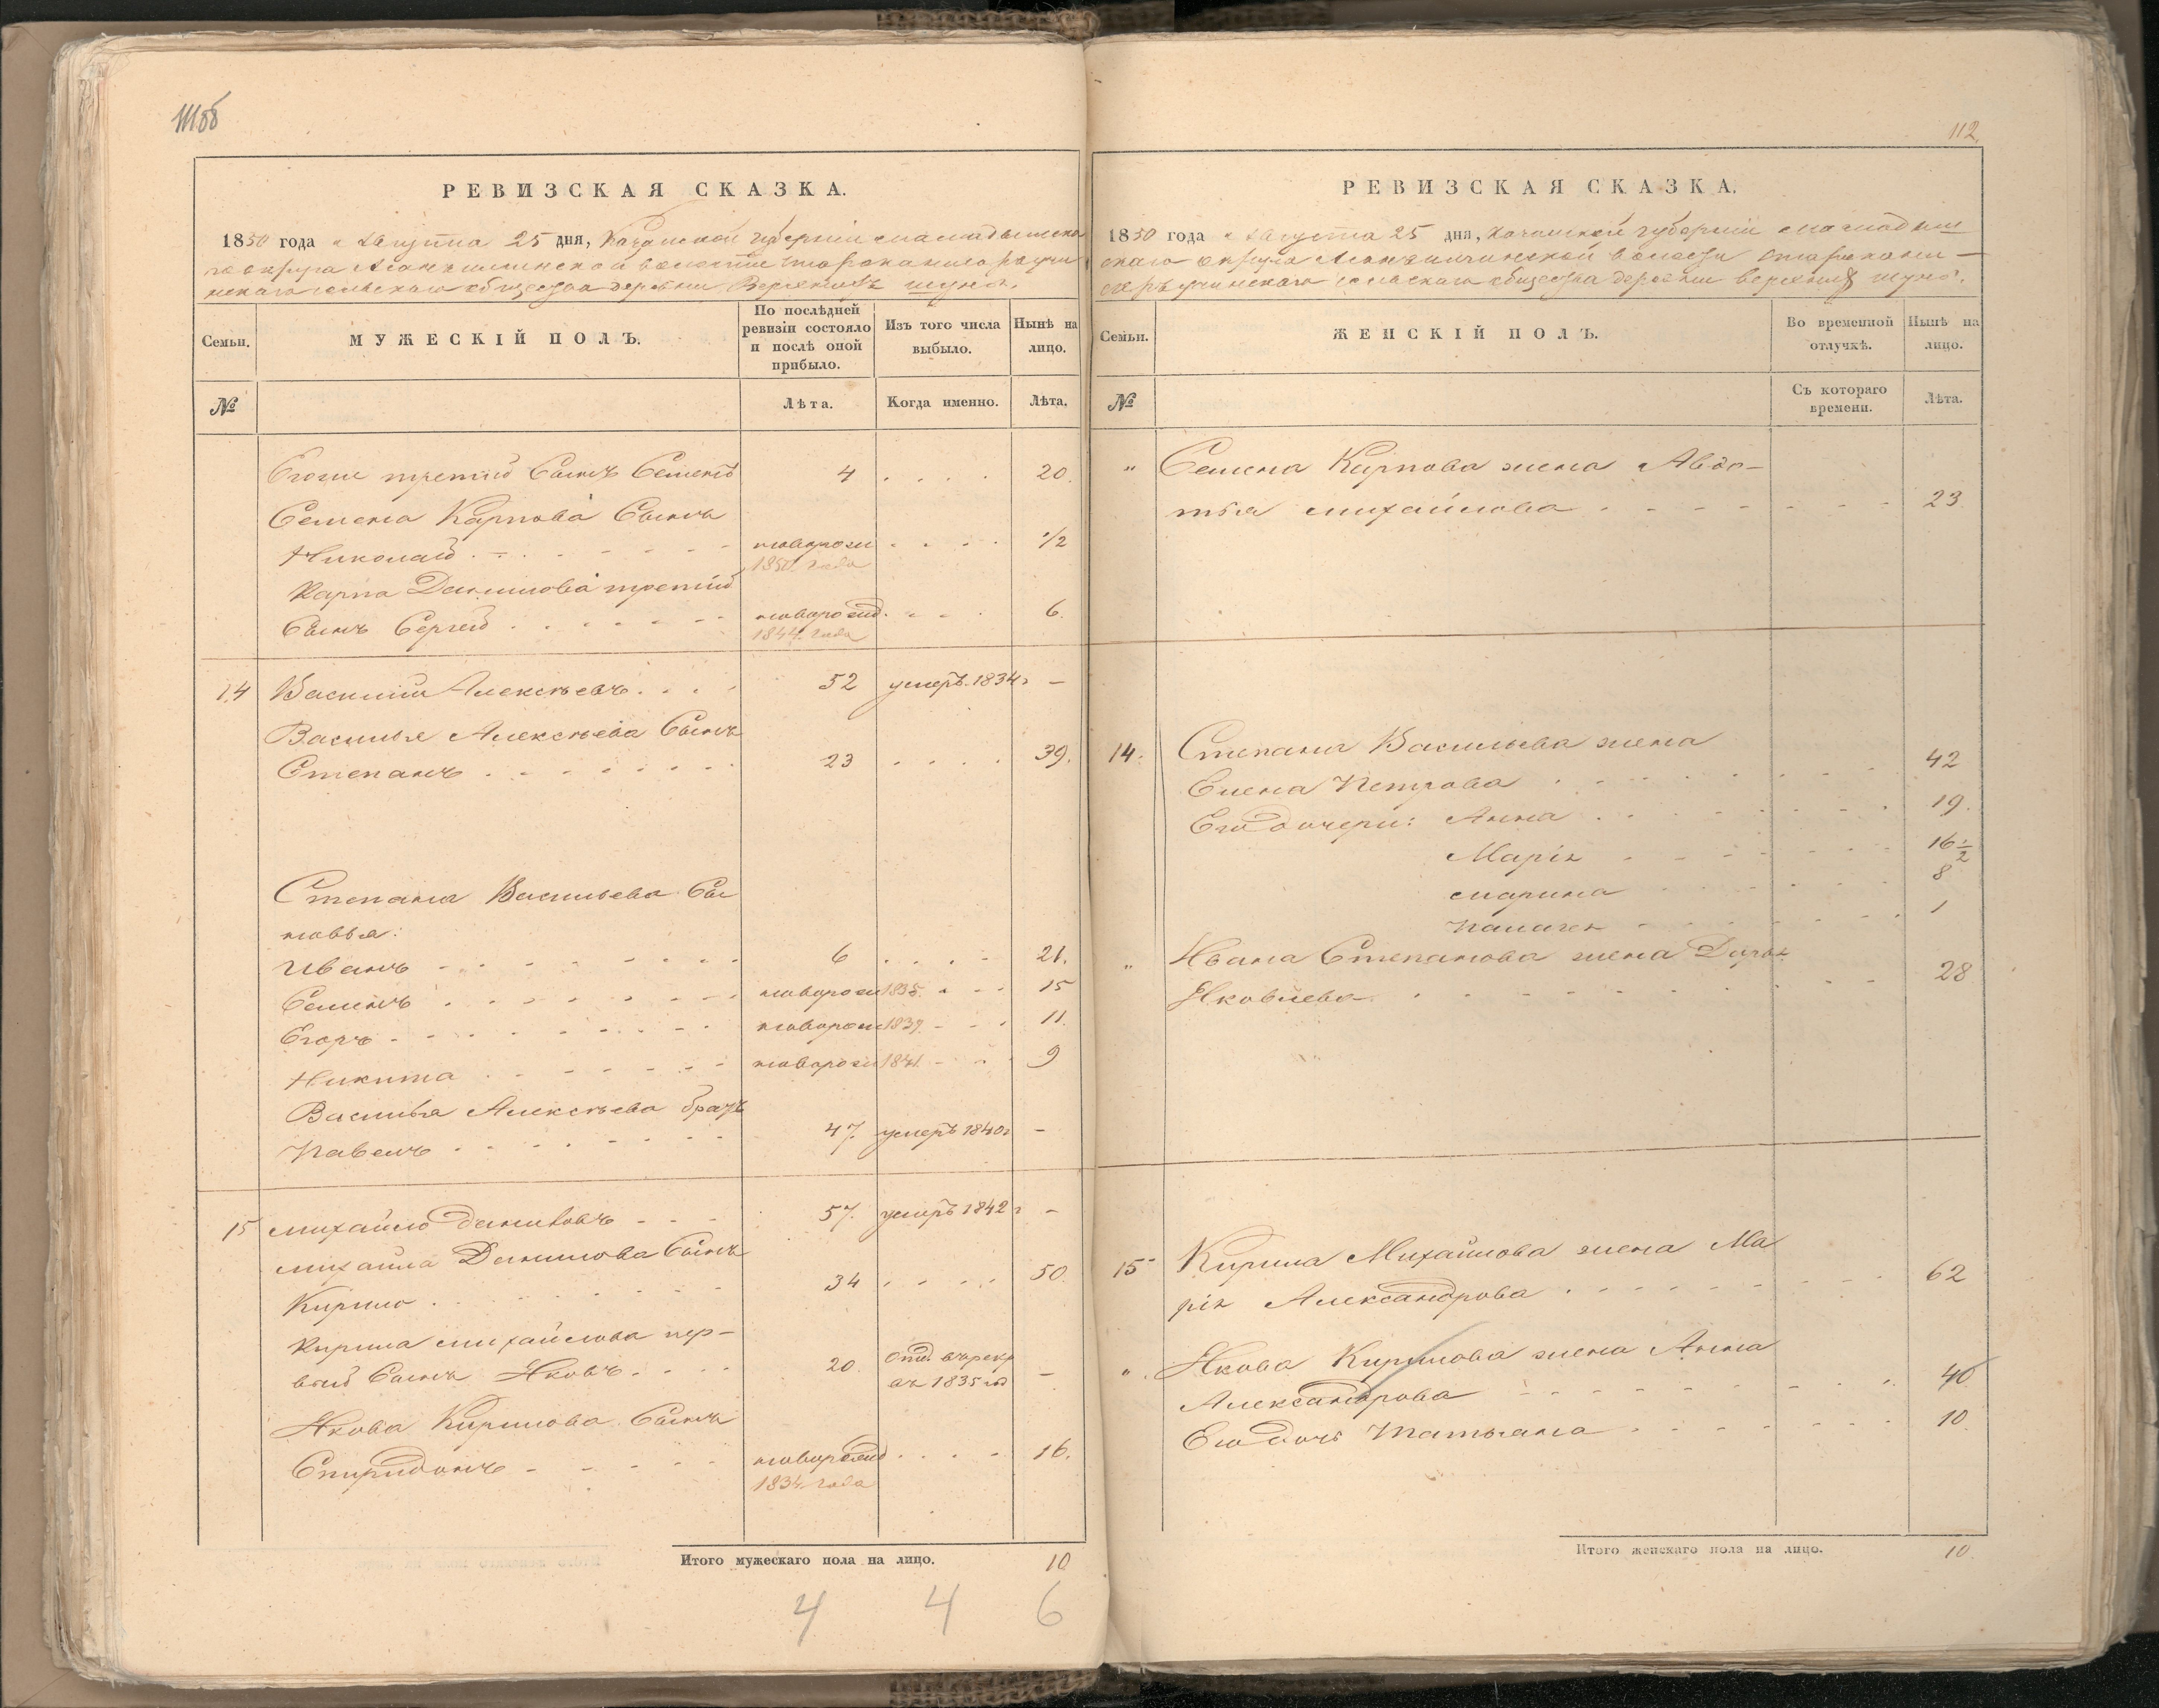 111об
РЕВИЗСКАЯ СКАЗКА.
1850 года Августа 25 дня, Казанской губерніи Мамадышска
го округа волости
скаго сельскаго общества деревни Верхнихъ Шунь.
Семьи.
МУЖЕСКІЙ ПОЛЪ.
По послѣдней
ревизіи состояло
и послѣ оной
прибыло.
Изъ того числа
выбыло.
Нынѣ на
лицо.
№
Лѣта.
Когда именно.
Лѣта.
третій Сынъ Семенъ 4 20.
Семена Карпова Сынъ
Николай новорож 1/2
1850 года
Карпа Данилова третій
Сынъ Сергей новорожд. 6.
1844 года
14 Василій Алексѣевъ 52 умеръ 1834г –
Василья Алексѣева Сынъ
Степанъ 23 39.
Степана Васильева Сы
новья:
Иванъ 6 21.
Семенъ новорож 1835 15
Егоръ новорож 1839 11.
Никита новорож 1841 9
Василья Алексѣева братъ
Павелъ 47. умеръ 1840г –
15 Михайло Даниловъ 57. умеръ 1842г –
Михаила Данилова Сынъ
Кирило 34 50.
Кирила Михайлова пер–
вый Сынъ Яковъ 20. отд. въ рекр –
въ 1835 год
Якова Кирилова Сынъ
Спиридонъ новорожд 16.
1834 года
Итого мужескаго пола на лицо. 10
4 4 6
112.
РЕВИЗСКАЯ СКАЗКА.
1850 года Августа 25 дня, Казанской губерніи Мамадыш
скаго округа волости
сельскаго общества деревни Верхнихъ Шунь.
Семьи.
ЖЕНСКІЙ ПОЛЪ.
Во временной
отлучкѣ.
Нынѣ на
лицо.
№
Съ котораго
времени.
Лѣта.
" Семена Карпова жена Авдо–
тья Михайлова 23.
14. Степана Васильева жена
Елена Петрова 42
Его дочери: Анна 19.
Марія 16 1/2
Марина 8
1
" Ивана Степанова жена Дарья
Яковлева 28
15 Кирила Михайлова жена Ма
рія Александрова 62
" Якова Кирилова жена Анна
Александрова 40
Его дочь Татьяна 10.
Итого женскаго пола на лицо. 10.